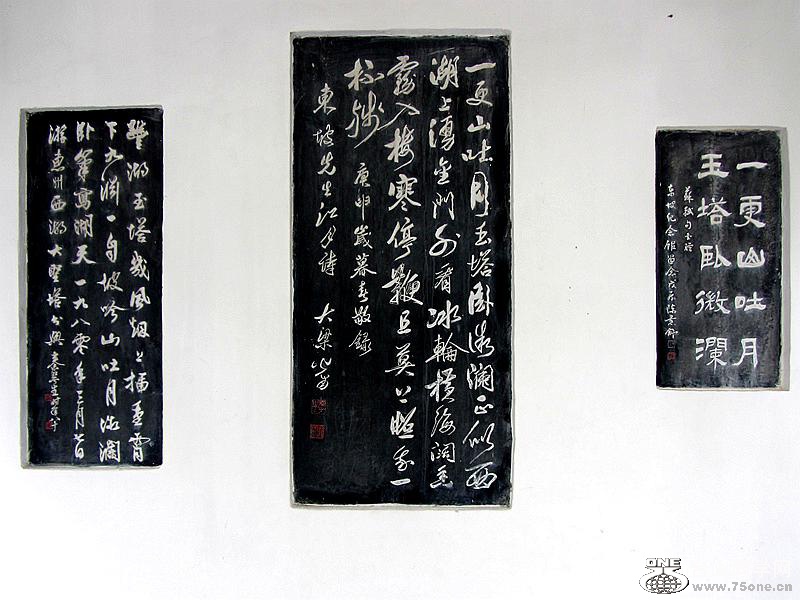 一更山吐月
玉塔臥微瀾
蘇軾句書贈
東坡紀念館留念戊辰陳景舒
一更山吐月玉塔卧微瀾正似西
湖上湧金門外看冰輪橫海闊香
霧入樓寒停鞭且莫上照我一
杯殘 庚申歲暮春敬錄
東坡先生江月詩 大梁
湖玉塔幾風烟上插重霄
下九淵一自坡吟山吐月微瀾
卧筆寫湖天一九八零年三月廿日
游惠州西湖大聖塔即興 秦咢生
ONE
www.75one.cn